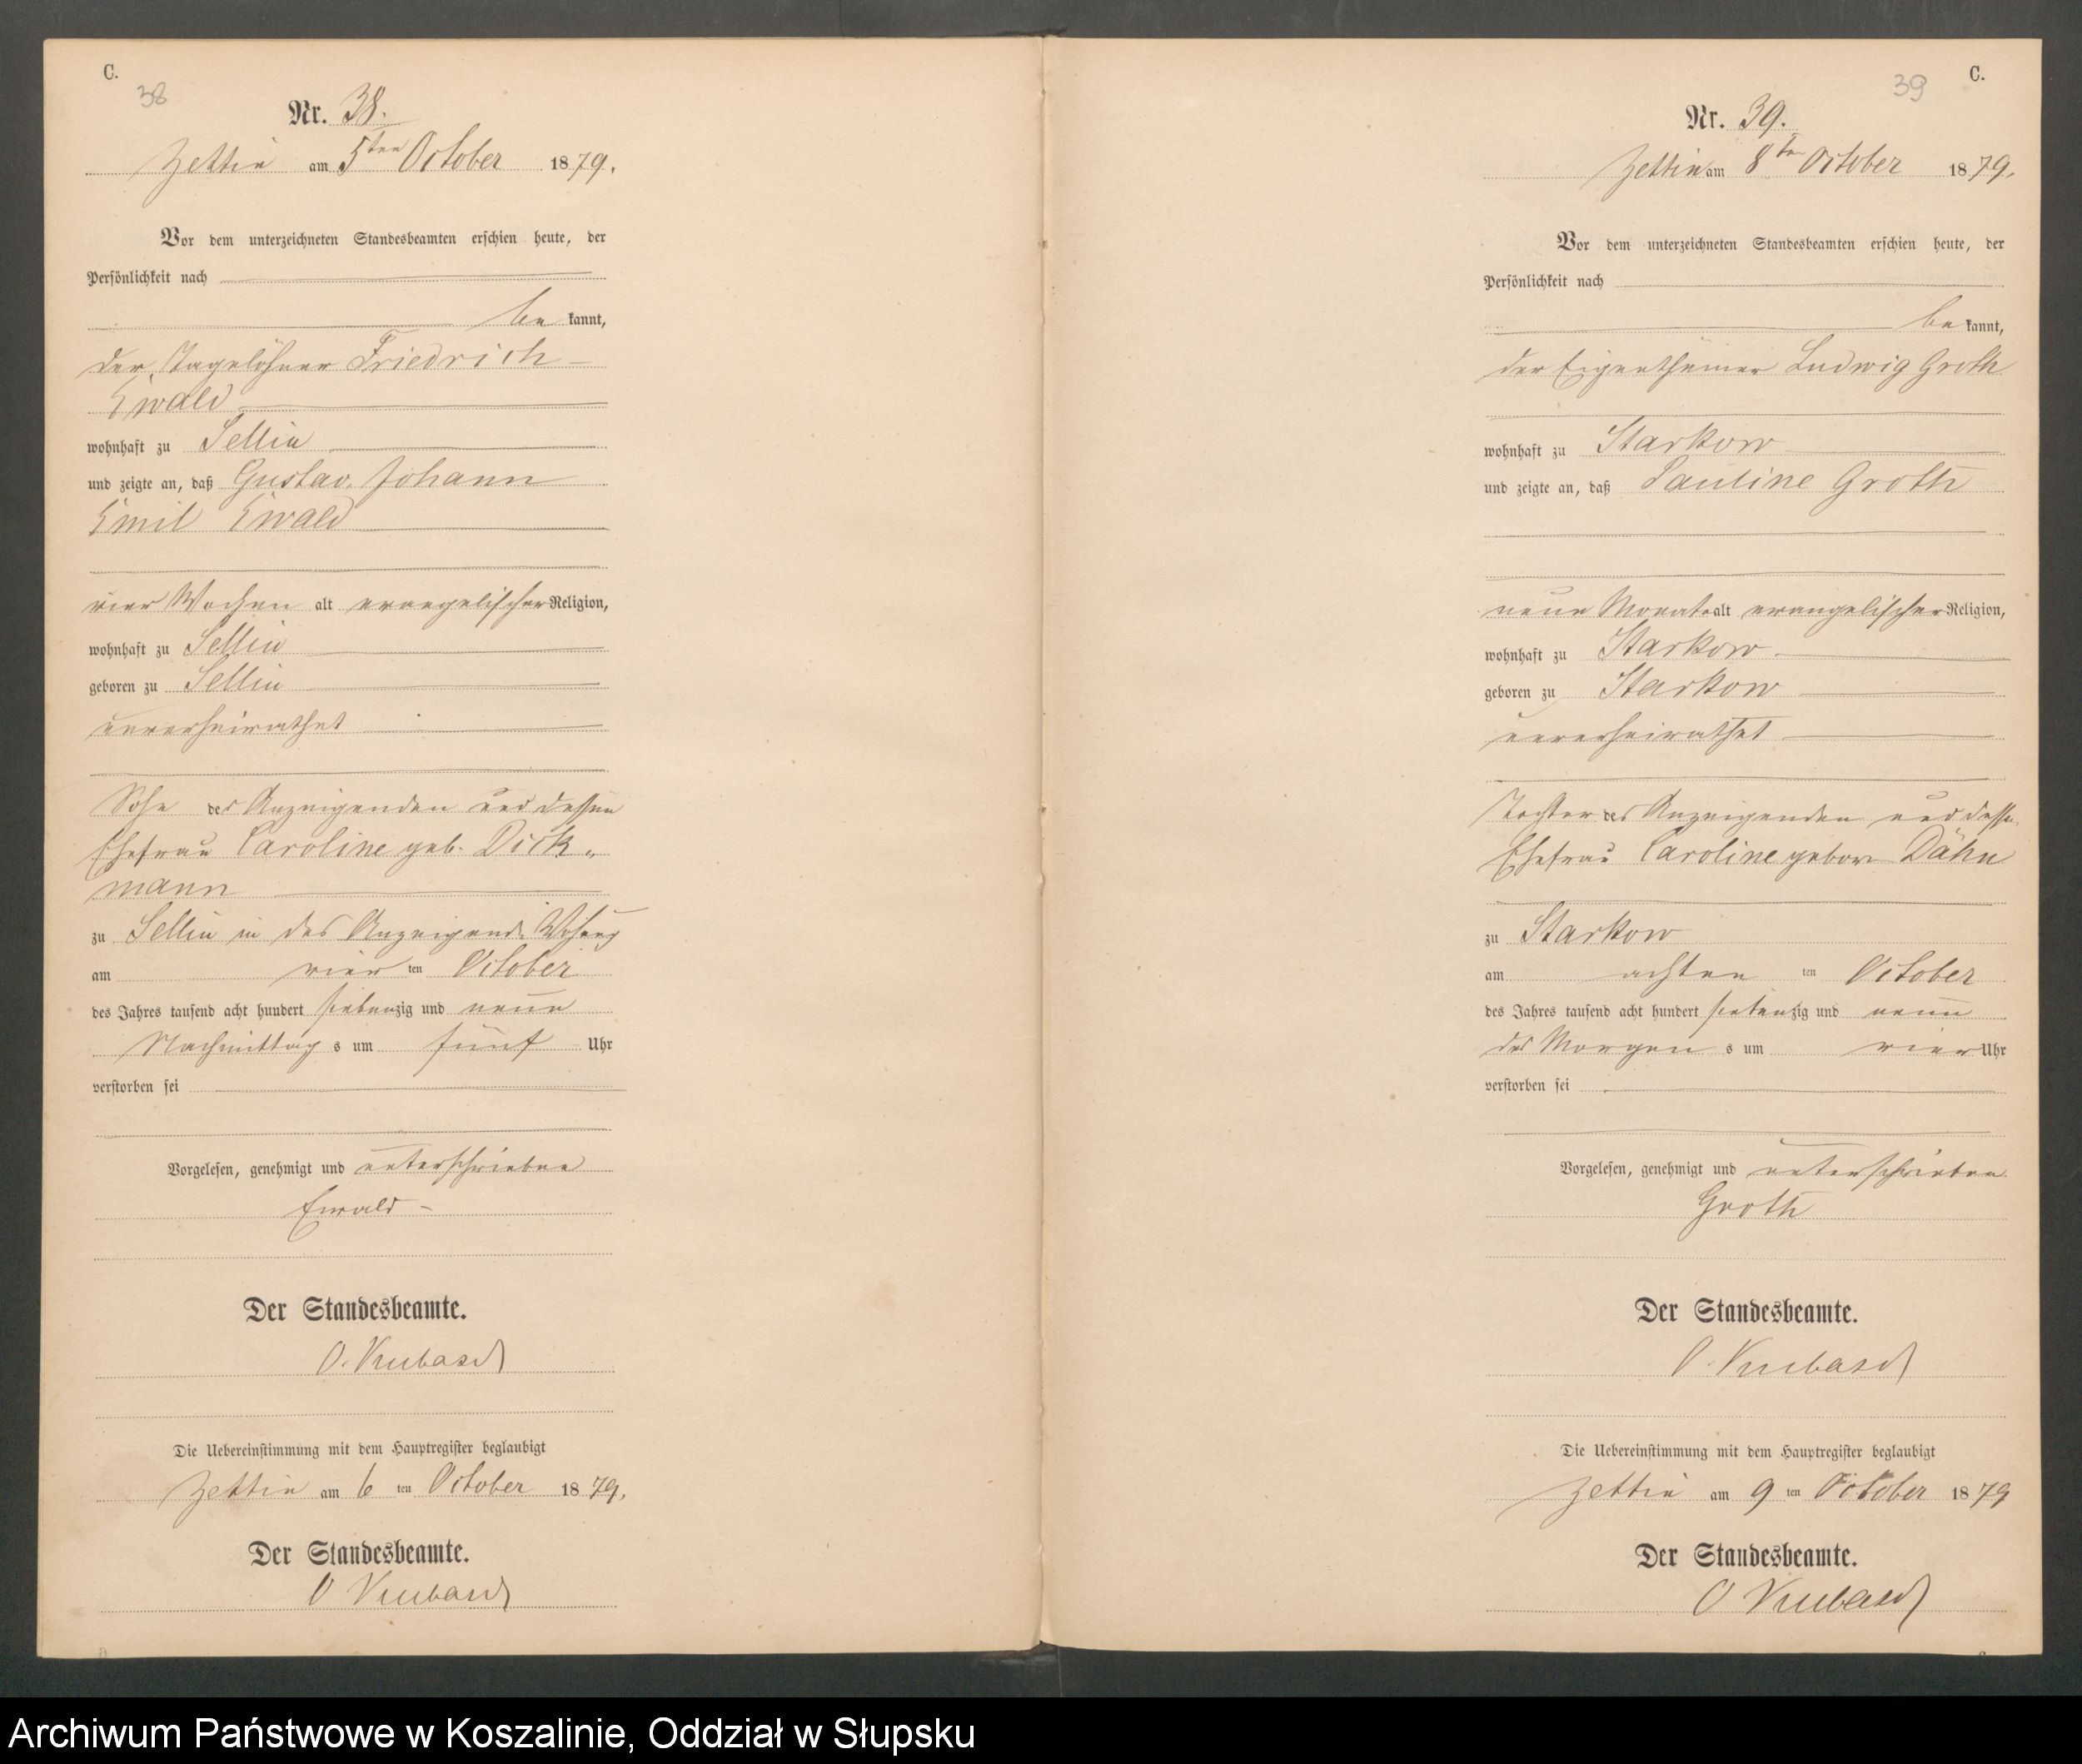 C.
38
Nr. 38.
Zettin am 5ten October 1879.
Vor dem unterzeichneten Standesbeamten erschien heute, der
Persönlichkeit nach
be kannt,
der Tagelöhner Friedrich
Ewald
wohnhaft zu Sellin
und zeigte an, daß Gustav Johann
Emil Ewald
vier Wochen alt evangelischer Religion,
wohnhaft zu Sellin
geboren zu Sellin
unverheirathet
Sohn des Anzeigenden und dessen
Ehefrau Caroline geb. Dick„
mann
zu Sellin in des Anzeigend. Wohung
am vier ten October
des Jahres tausend acht hundert siebenzig und neun
Nachmittag s um fünf Uhr
verstorben sei
Vorgelesen, genehmigt und unterschrieben
Ewald
Der Standesbeamte.
O.
Die Uebereinstimmung mit dem Hauptregister beglaubigt
Zettin am 6 ten October 1879.
Der Standesbeamte.
O
C.
39
Nr. 39.
Zettin am 8ten October 1879.
Vor dem unterzeichneten Standesbeamten erschien heute, der
Persönlichkeit nach
be kannt,
der Eigenthümer Ludwig Groth
wohnhaft zu Starkow
und zeigte an, daß Pauline Groth
neun Monate alt evangelischer Religion,
wohnhaft zu Starkow
geboren zu Starkow
unverheirathet
Tochter des Anzeigenden und dessen
Ehefrau Caroline geborn Dähn
zu Starkow
am achten ten October
des Jahres tausend acht hundert siebenzig und neun
des Morgen s um vier Uhr
verstorben sei
Vorgelesen, genehmigt und unterschrieben
Groth
Der Standesbeamte.
O.
Die Uebereinstimmung mit dem Hauptregister beglaubigt
Zettin am 9 ten October 1879
Der Standesbeamte.
O
Archiwum Państwowe w Koszalinie, Oddział w Słupsku